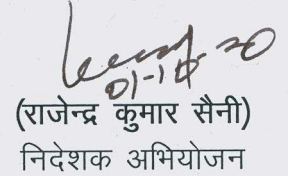 01-10-20
(राजेन्द्र कुमार सैनी)
निदेशक अभियोजन